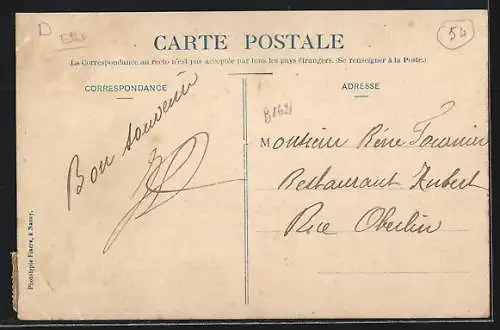 D
54
CARTE POSTALE
La Correspondance au recto n'est pas acceptée par tous les pays étrangers. (Se renseigner à la Poste.)
CORRESPONDANCE
ADRESSE
Bon souvenir
Monsieur Réne Fournier
Restaurant Hubert
Rue Oberlin
Phototypie Fisera, à Nancy.